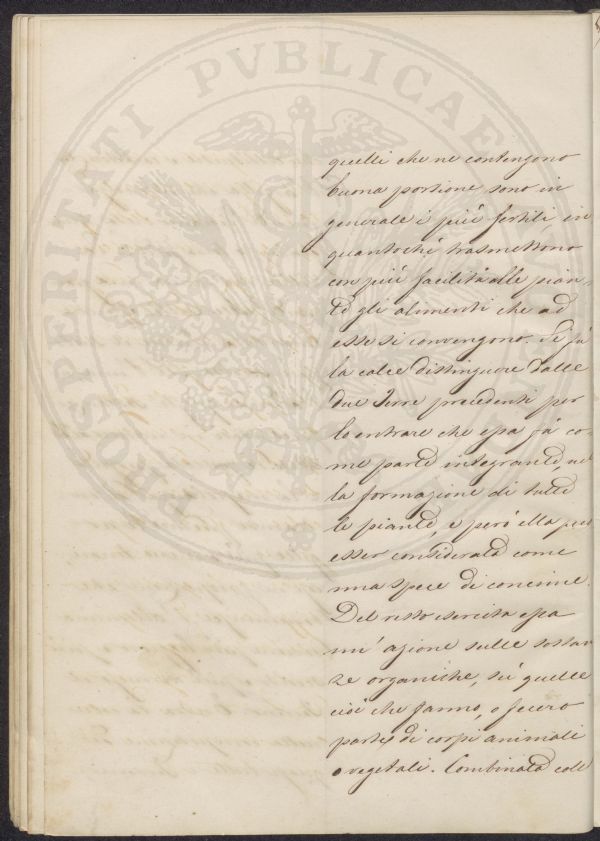 PROSPERITATI PVBLICAE
quelli che ne contengono
buona portione sono in
generale i più fertili in
quantochè trasmettono
con più facilità alle pian,
te gli alimenti che ad
esse si convengono. Si fà
la calce distinguere dalle
due Terre precedenti per
lo entrare che essa fà co,
me parte integrante, nel
la formazione di tutte
le piante, e però ella può
esser considerata come
una spece di concime.
Del resto esercita essa
un' azione sulle sostan
ze organiche, sù quelle
cioè che fanno, o fecero
parte di corpi animali
o vegetali. Combinata coll